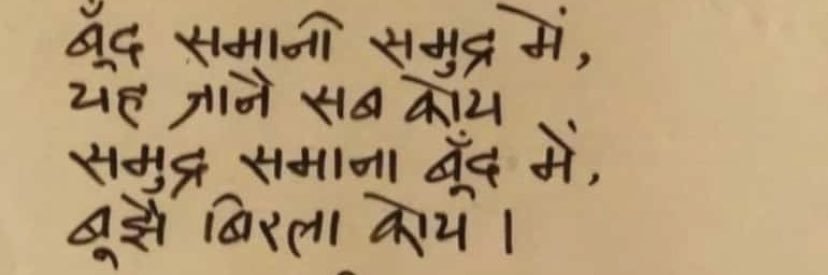 बूँद समानी समुद्र में,
यह जानै सब कोय
समुद्र समाना बूँद में,
बूझै बिरला कोय ।